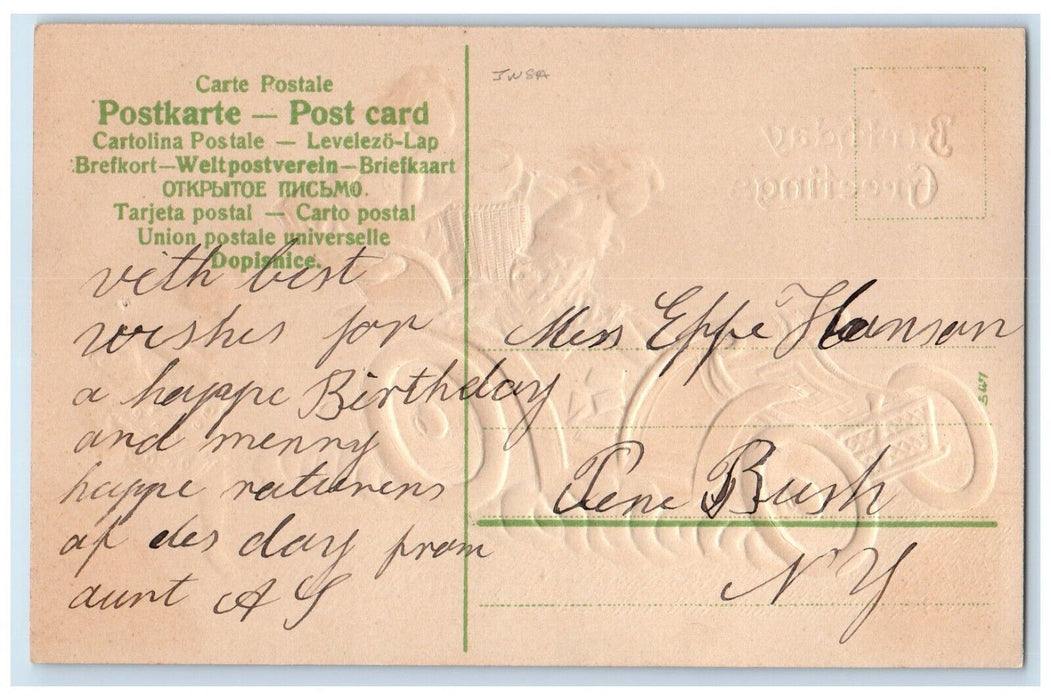 Carte Postale
Postkarte — Post card
Cartolina Postale — Levelező-Lap
Brefkort—Weltpostverein—Briefkaart
ОТКРЫТОЕ ПИСЬМО.
Tarjeta postal — Carto postal
Union postale universelle
Dopisnice.
vith best
wishes for
a happe Birthday
and menny
happe raturens
af des day fram
aunt A S
JWSA
Birthday
Greetings
Mess Effe Hanson
Pene Bush
N Y